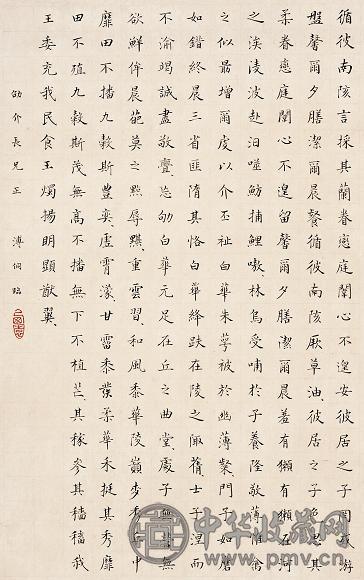 循彼南陔言採其蘭眷戀庭闈心不遑安彼居之子罔或游
盤馨爾夕膳潔爾晨餐循彼南陔厥草油、彼居之子色思其
柔眷戀庭闈心不遑留馨爾夕膳潔爾晨羞有獺有獺在河
之涘淩波赴汨噬魴捕鯉嗷、林烏受哺於子養隆敬薄惟禽
之似勗增爾虔以介丕祉白華朱萼被於幽薄粲、門子如磨
如錯終晨三省匪惰其恪白華絳趺在陵之陬蒨、士子涅而
不渝竭誠盡敬亹、忘劬白華元足在丘之曲堂、處子無營無
欲鮮侔晨葩莫之點辱黮、重雲習、和風黍華陵巔麥秀丘中
靡田不播九穀斯豐奕、虛霄濛、甘霤黍發柔華禾挺其秀靡
田不殖九穀斯茂無高不播無下不植芒、其稼參、其穡稸我
王委充我民食玉燭揚明顯猷翼、
劬介長兄正 溥侗臨
中华收藏网
www.pmv.cn